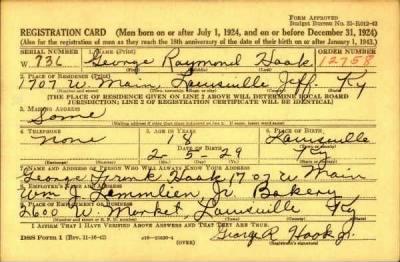 Form Approved
Budget Bureau No. 33-R012-43
REGISTRATION CARD—(Men born on or after July 1, 1924, and on or before December 31, 1924)
(Also for the registration of men as they reach the 18th anniversary of the date of their birth on or after January 1, 1943.)
SERIAL NUMBER 1. NAME (Print) ORDER NUMBER
W. 736 George Raymond Hook 12758
2. PLACE OF RESIDENCE (Print)
1707 W. Main Louisville Jeff. Ky
[THE PLACE OF RESIDENCE GIVEN ON LINE 2 ABOVE WILL DETERMINE LOCAL BOARD
JURISDICTION; LINE 2 OF REGISTRATION CERTIFICATE WILL BE IDENTICAL]
3. MAILING ADDRESS
Same
4. TELEPHONE 5. AGE IN YEARS 6. PLACE OF BIRTH
none 18 Louisville
DATE OF BIRTH
Ky
7. NAME AND ADDRESS OF PERSON WHO WILL ALWAYS KNOW YOUR ADDRESS
George Frank Hook 1707 W Main
8. EMPLOYER'S NAME AND ADDRESS
Wm J. Jr Bakery
9. PLACE OF EMPLOYMENT OR BUSINESS
2600 W. Market, Louisville Ky
I AFFIRM THAT I HAVE VERIFIED ABOVE ANSWERS AND THAT THEY ARE TRUE.
DSS Form 1 (Rev. 11-16-42) (OVER) George R Hook Jr.
(Registrant's signature)